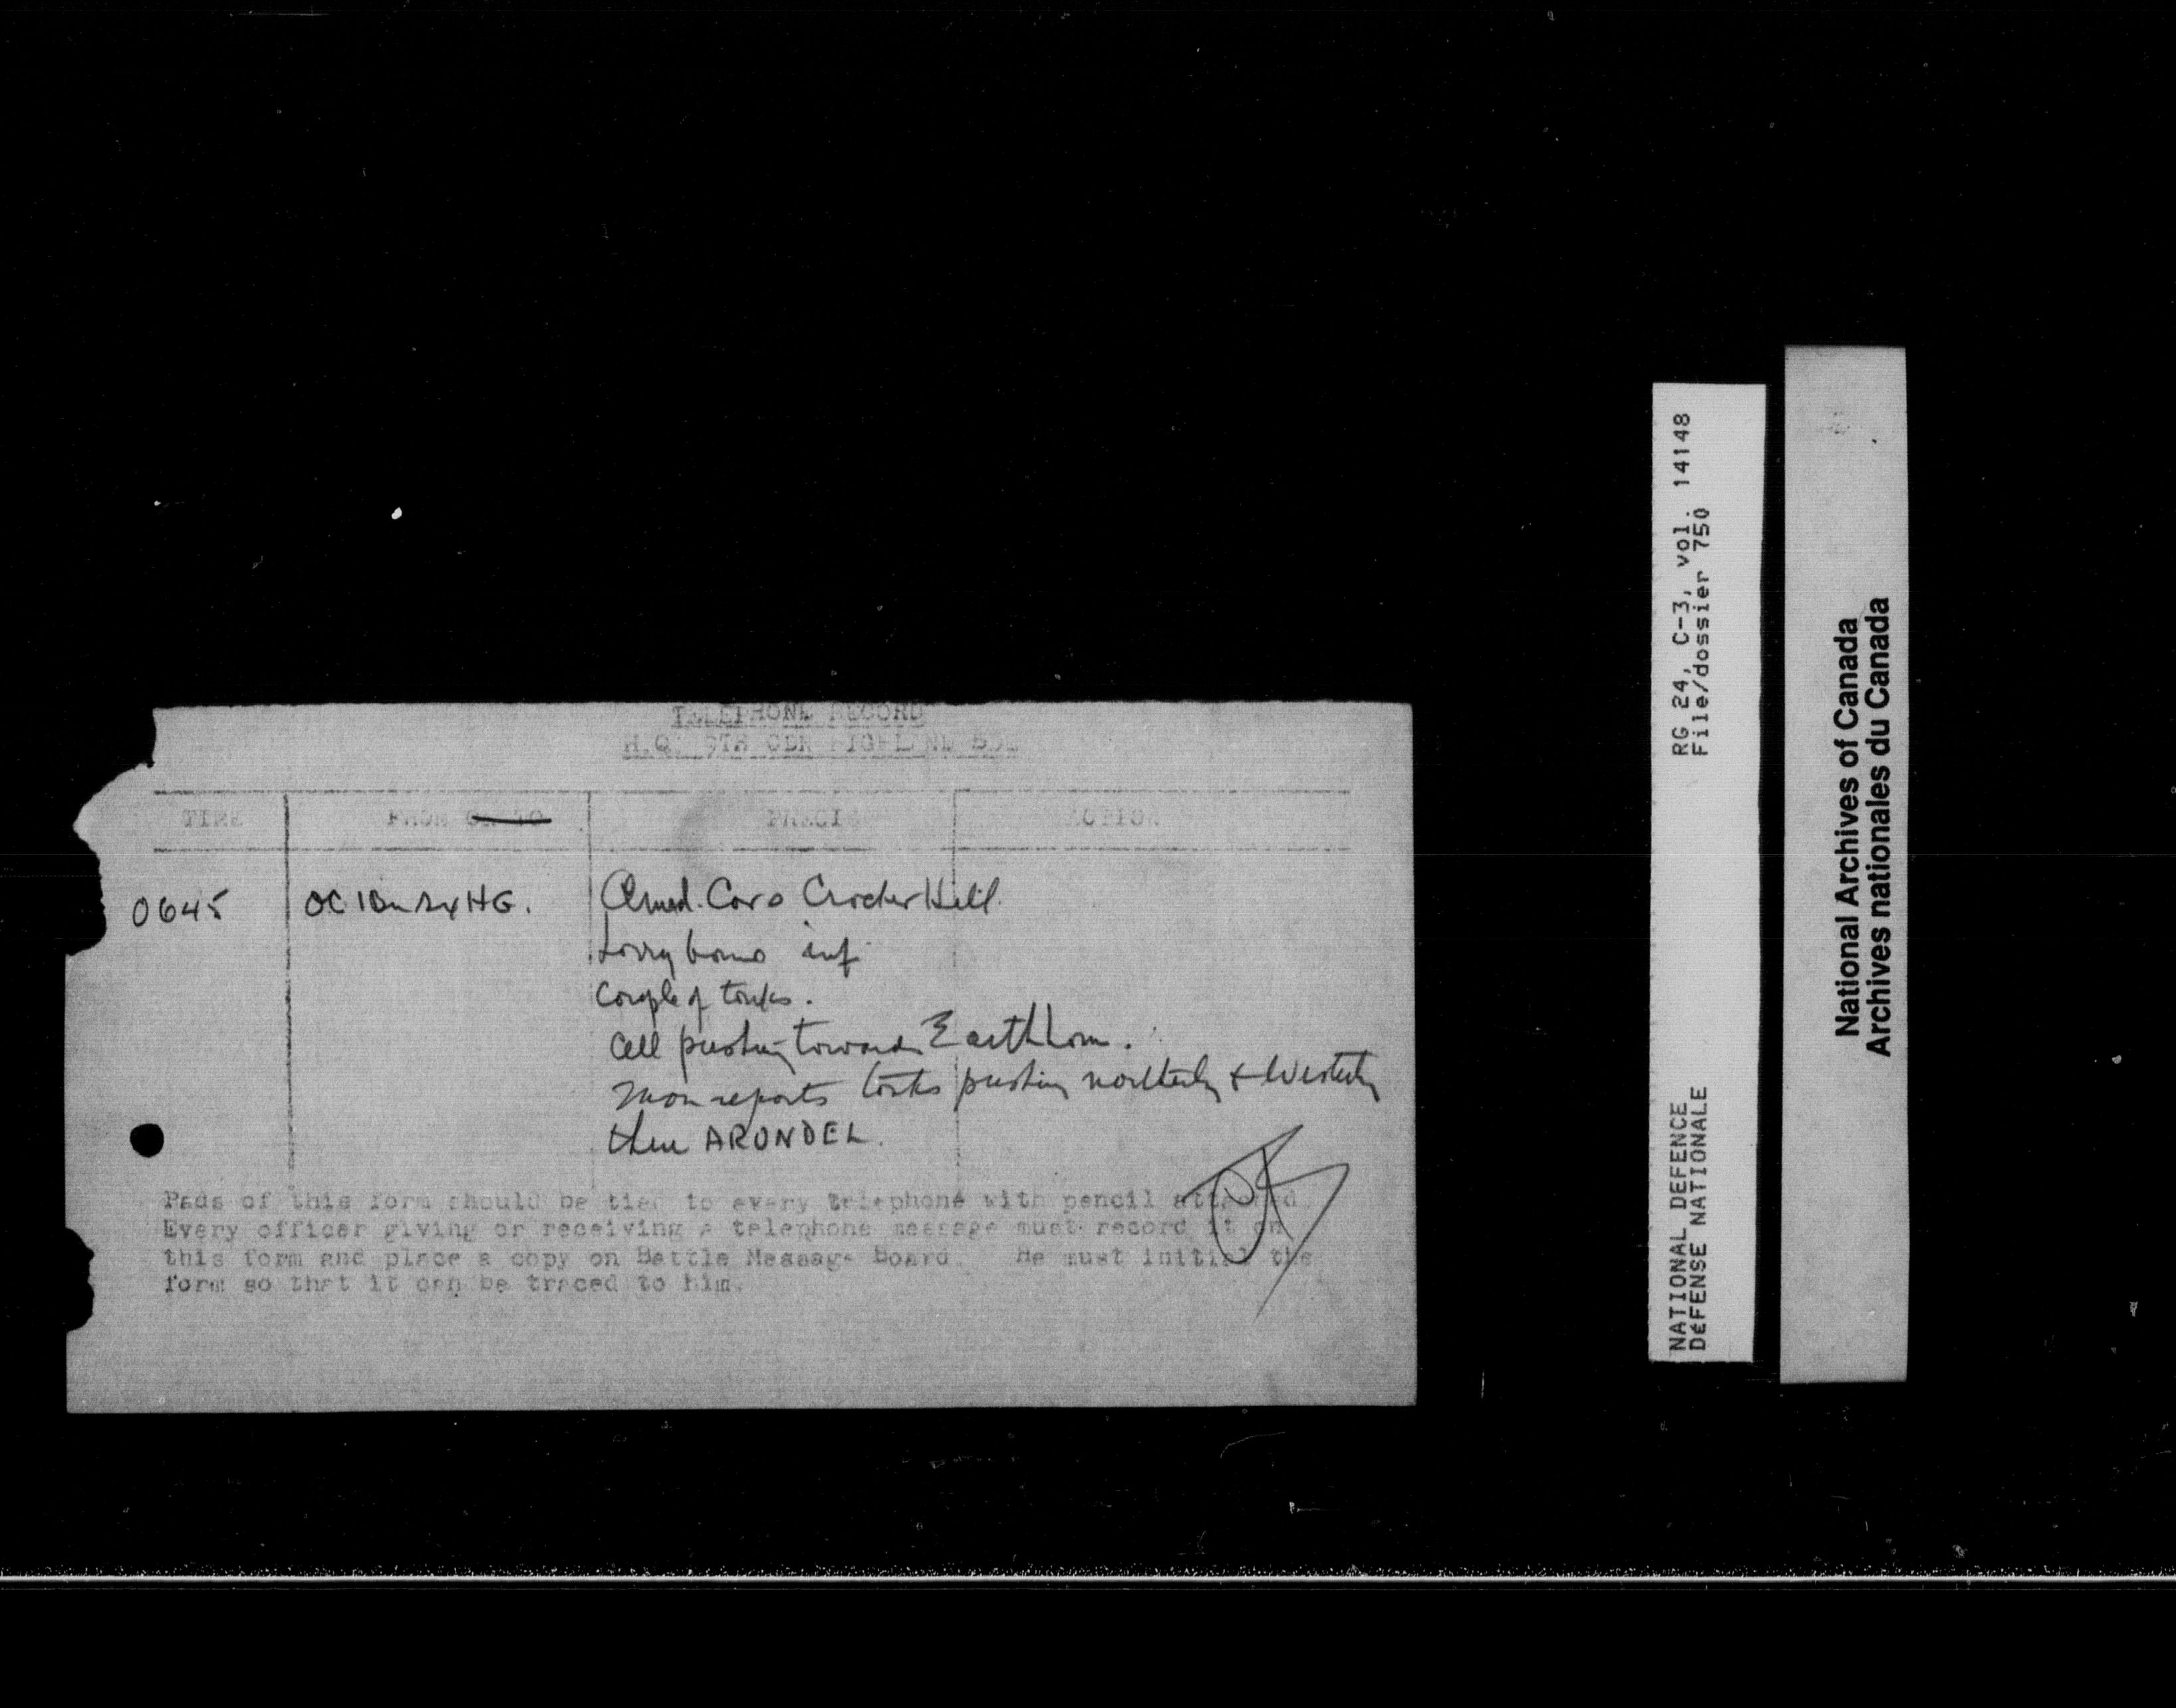 TELEPHONE RECORD
H.Q. 9TH CDN HIGHLAND BDE
TIME FROM OR TO PRECIS ACTION
0645 OC 1Bn Sx HG. Armd. Cars Crocker Hill.
Lorry borne inf.
Couple of tanks.
All pushing towards Eartham.
Man reports tanks pushing northerly & Westerly
thru ARUNDEL.
Pads of this form should be tied to every telephone with pencil attached.
Every officer giving or receiving a telephone message must record it on
this form and place a copy on Battle Message Board. He must initial the
form so that it can be traced to him.
RG 24, C-3, vol. 14148
File/dossier 750
NATIONAL DEFENCE
DéFENSE NATIONALE
National Archives of Canada
Archives nationales du Canada